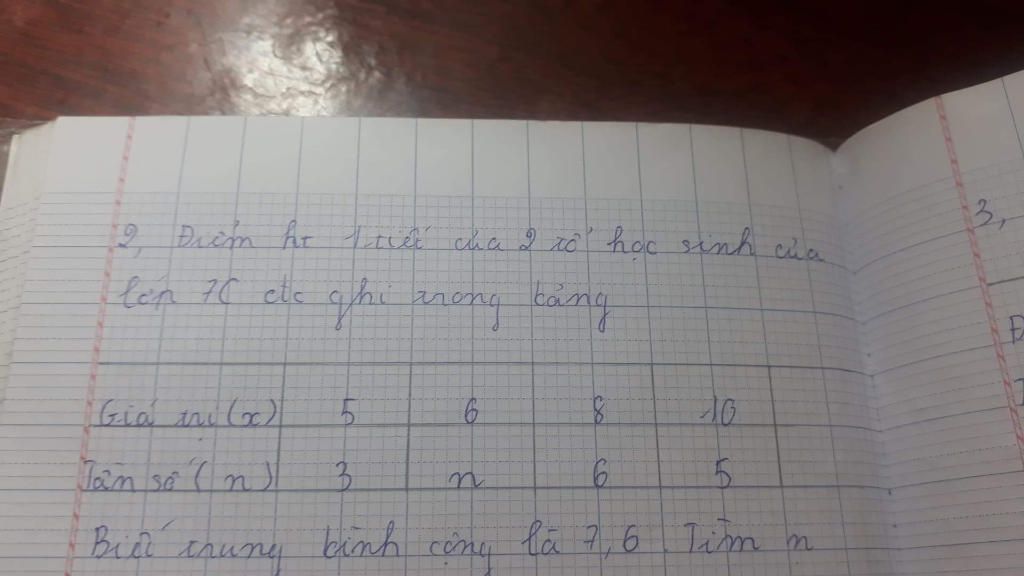 2, Điểm kt 1 tiết của 2 số học sinh của
lớp 7C đc ghi trong bảng
Giá trị (x) 5 6 8 10
Tần số (n) 3 n 6 5
Biết trung bình cộng là 7,6. Tìm n
3,